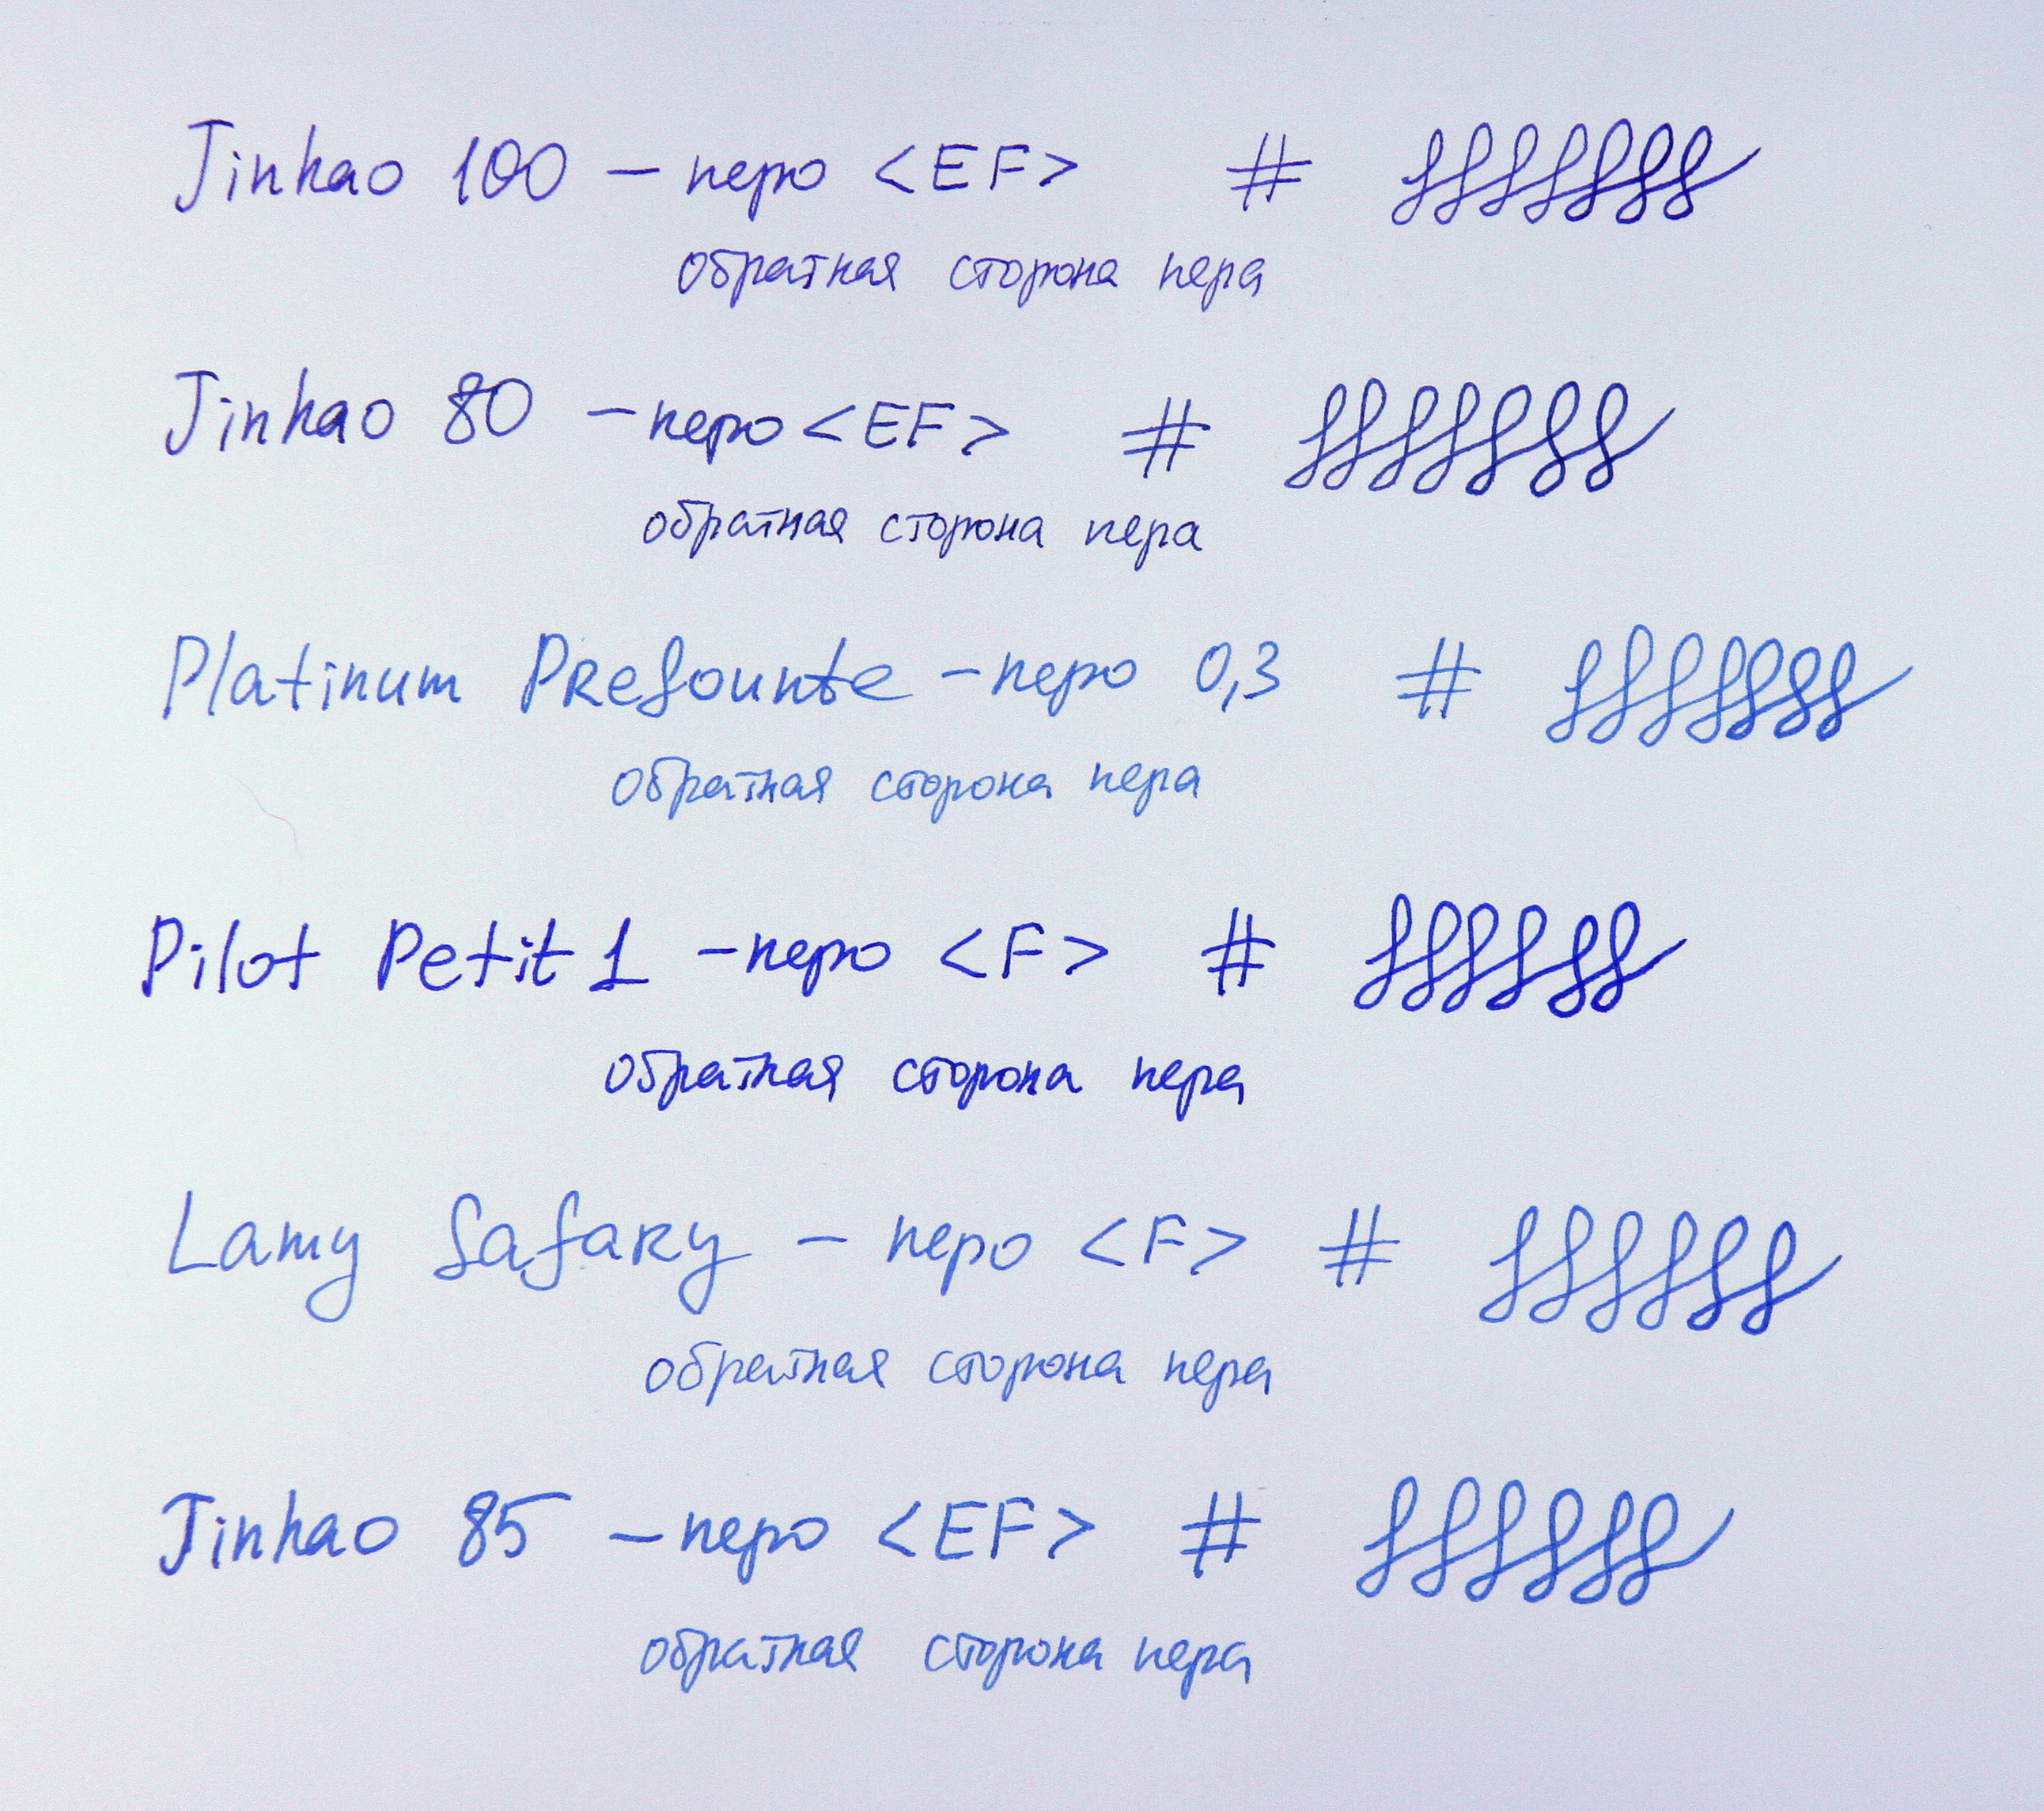 Jinhao 100 – перо <EF> #
обратная сторона пера
Jinhao 80 – перо <EF> #
обратная сторона пера
Platinum Prefounte – перо 0,3 #
обратная сторона пера
Pilot Petit 1 – перо <F> #
обратная сторона пера
Lamy Safary – перо <F> #
обратная сторона пера
Jinhao 85 – перо <EF> #
обратная сторона пера